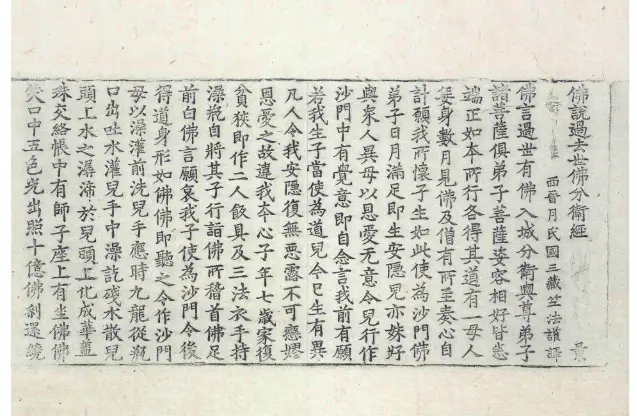 佛說過去世佛分衛經
西晉月氏國三藏竺法護譯
佛言過世有佛入城分衛與尊弟子
諸菩薩俱弟子菩薩姿容相好皆悉
端正如本所行各得其道有一母人
妊身數月見佛及僧有所至奏心自
計願我所懷子生如此使為沙門佛
弟子日月滿足即生安隱兒亦姝好
與衆人異母以恩愛无意令兒行作
沙門中有覺意即自念言我前有願
若我生子當使為道兒今已生有異
凡人令我安隱復無惡露不可癡嫪
恩愛之故違我本心子年七歲家復
貧狹即作二人飯具及三法衣手持
澡甁自將其子行詣佛所稽首佛足
前白佛言願哀我子使為沙門令後
得道身形如佛佛即聽之令作沙門
母以澡灌前洗兒手應時九龍從甁
口出吐水灌兒手中澡訖殘水散兒
頭上水之瀑渧於兒頭上化成華蓋
珠交絡帳中有師子座上有坐佛佛
笑口中五色光出照十億佛刹還繞